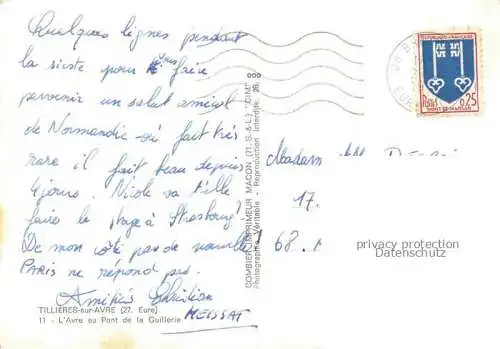 Quelques lignes pendant
la sieste pour vous faire
parvenir un salut amical
de Normandie où fait très
rare il fait beau depuis
4 jours. Nicole va t'elle
faire le stage à Strasbourg?
De mon côté pas de nouvelles
PARIS ne répond pas.
Amitiés Christian
MEISSAT
TILLIÈRES-sur-AVRE (27. Eure)
11 - L'Avre au Pont de la Guillerie
COMBIER IMPRIMEUR MACON (71. S.-&-L.) "CIM"
Photographie Véritable - Reproduction interdite
REPUBLIQUE FRANCAISE
0,25
POSTES
MONT-DE-MARSAN
Madam
17.
68.
privacy protection
Datenschutz